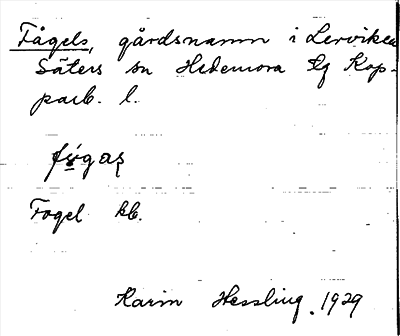 Fågels, gårdsnamn i Lerviken
Säters sn Hedemora tg Kop-
parb. l.
fɷ́gas
Fogel kb.
Karin Hessling. 1929